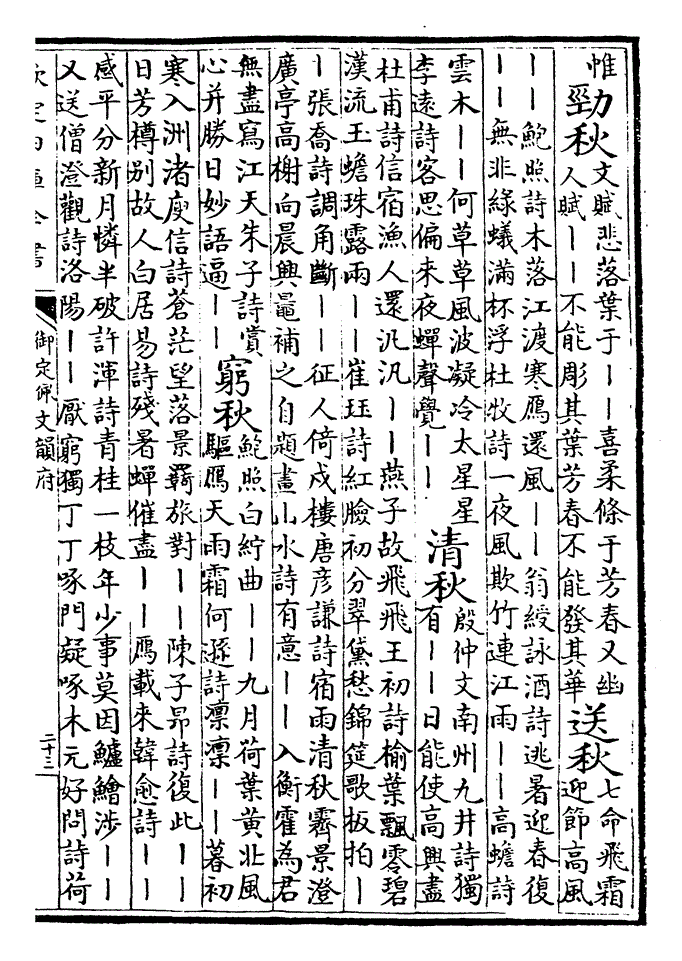 惟
勁秋
文賦悲落葉于丨丨喜柔條于芳春又幽
人賦丨丨不能彫其葉芳春不能發其華
送秋
七命飛霜
迎節高風
丨丨鮑照詩木落江渡寒鴈還風丨丨翁綬詠酒詩逃暑迎春復
丨丨無非緑蟻滿杯浮杜牧詩一夜風欺竹連江雨丨丨高蟾詩
雲木丨丨何草草風波凝冷太星星
李遠詩客思偏来夜蟬聲覺丨丨
清秋
殷仲文南州九井詩獨
有丨丨日能使高興盡
杜甫詩信宿漁人還汎汎丨丨燕子故飛飛王初詩榆葉飄零碧
漢流玉蟾珠露兩丨丨崔珏詩紅臉初分翠黛愁錦筵歌板拍丨
丨張喬詩調角斷丨丨征人倚戍樓唐彦謙詩宿雨清秋霽景澄
廣亭高榭向晨興鼂補之自題畫山水詩有意丨丨入衡霍為君
無盡寫江天朱子詩賞
心并勝日妙語逼丨丨
窮秋
鮑照白紵曲丨丨九月荷葉黄北風
驅鴈天雨霜何遜詩凛凛丨丨暮初
寒入洲渚庾信詩蒼茫望落景羇旅對丨丨陳子昂詩復此丨丨
日芳樽别故人白居易詩殘暑蟬催盡丨丨鴈載来韓愈詩丨丨
感平分新月憐半破許渾詩青桂一枝年少事莫因鱸鱠涉丨丨
又送僧澄觀詩洛陽丨丨厭窮獨丁丁啄門疑啄木元好問詩荷
欽定四庫全書
御定佩文韻府
二十三